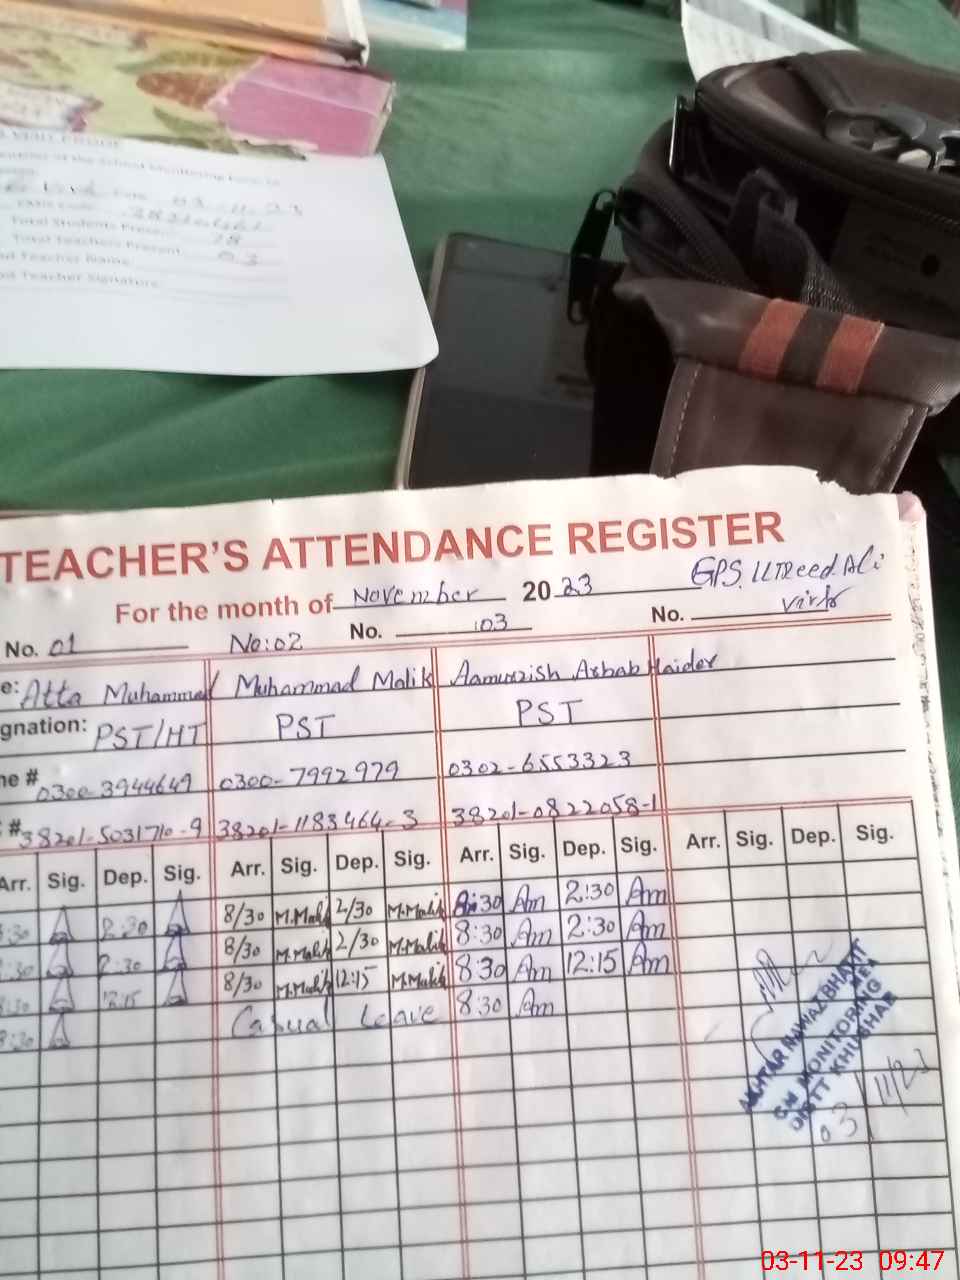 Date 03-11-23
Total Students Present 78
Total Teachers Present 03
Teacher Name:
Teacher Signature
TEACHER'S ATTENDANCE REGISTER
For the month of November 2023 GPS Utreed Ali
Virk
No. 01 No:02 No. 03 No.
e: Atta Muhammad Muhammad Malik Aamurzish Arbab Haider
gnation: PST/HT PST PST
ne # 0300-3944649 0300-7992979 0302-6553323
# 38201-5031710-9 38201-1183464-3 38201-0822058-1
Arr. Sig. Dep. Sig. Arr. Sig. Dep. Sig. Arr. Sig. Dep. Sig. Arr. Sig. Dep. Sig.
:30 2:30 8/30 M.Malik 2/30 M.Malik 8:30 Am 2:30 Am
:30 2:30 8/30 M.Malik 2/30 M.Malik 8:30 Am 2:30 Am
8:30 12:15 8/30 M.Malik 12:15 M.Malik 8:30 Am 12:15 Am
8:30 Casual Leave 8:30 Am
AKHTAR NAWAZ BHATTI
MONITORING AREA
DISTT KHUSHAB
03/11/23
03-11-23 09:47